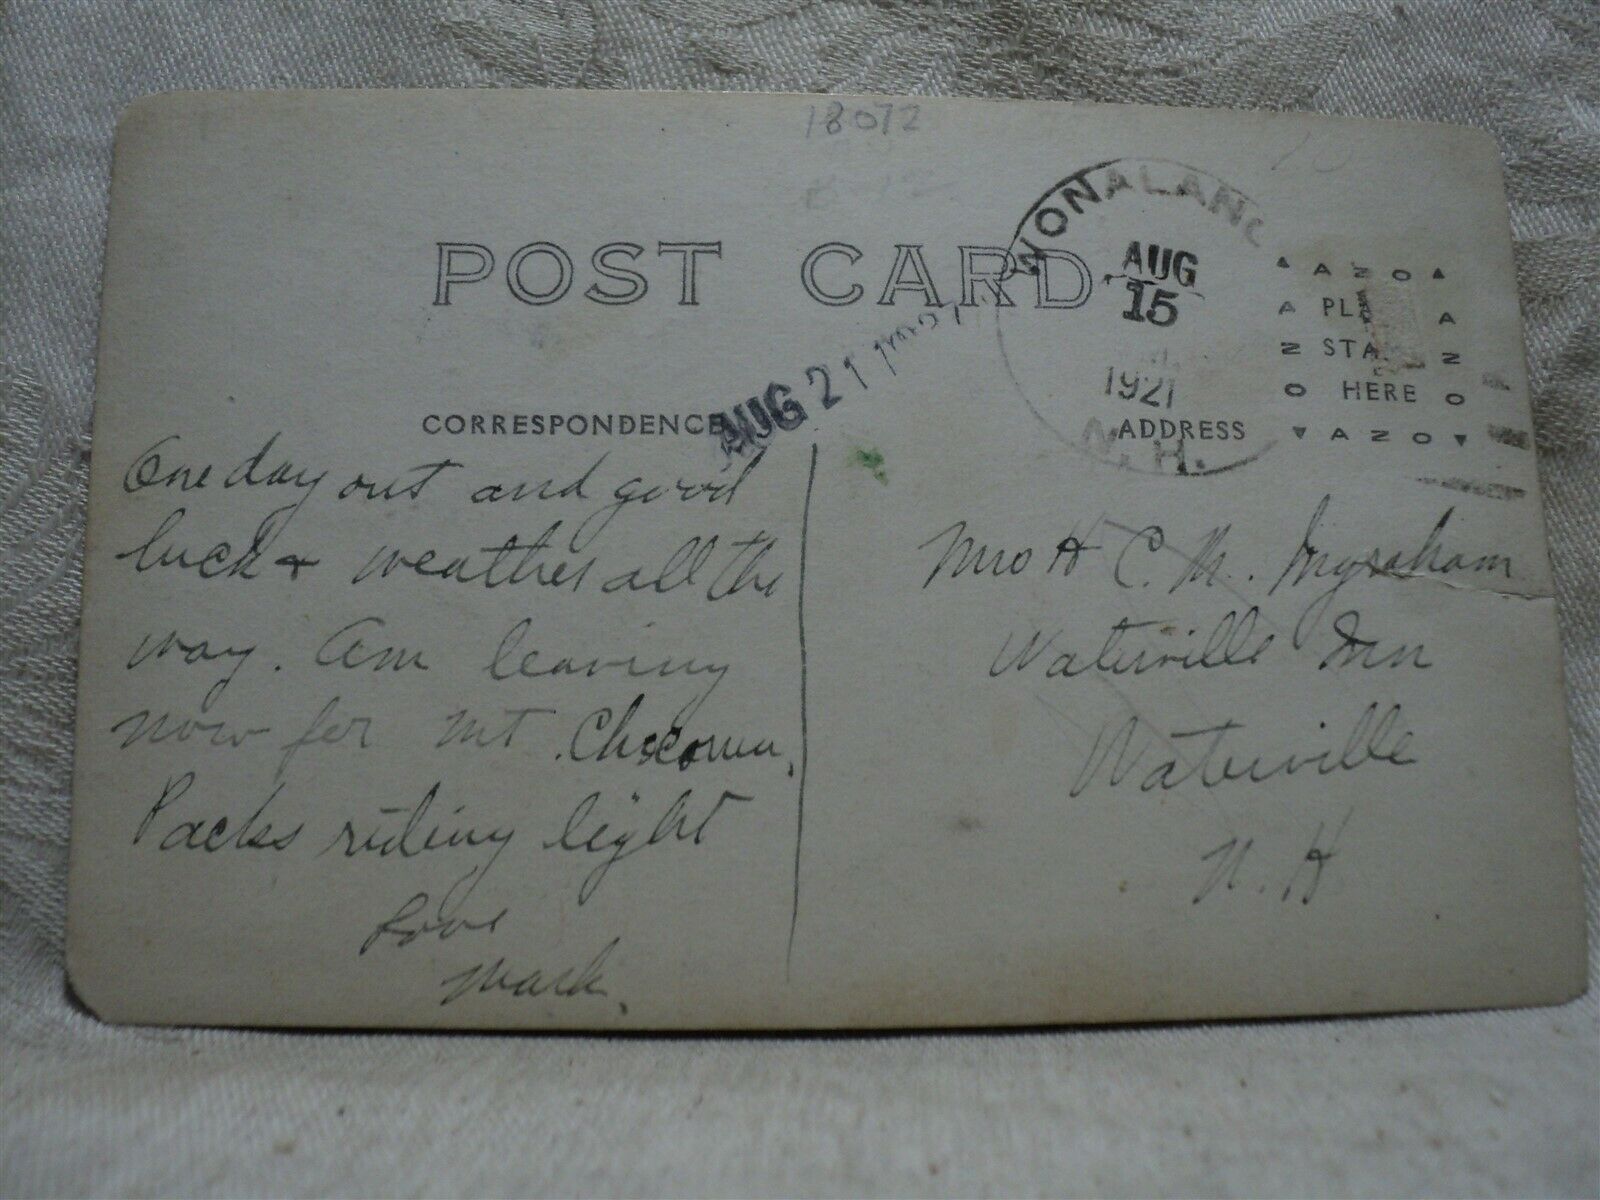 18072
POST CARD
WONALANC
AUG
15
1921
N. H.
AUG 21
AZO
PLA
STA
HERE
AZO
CORRESPONDENCE
ADDRESS
One day out and good
luck + weather all the
way. Am leaving
now for Mt. Chocorua.
Packs riding light
Love
Mark.
C. M. Ingraham
Waterville Inn
Waterville
N. H